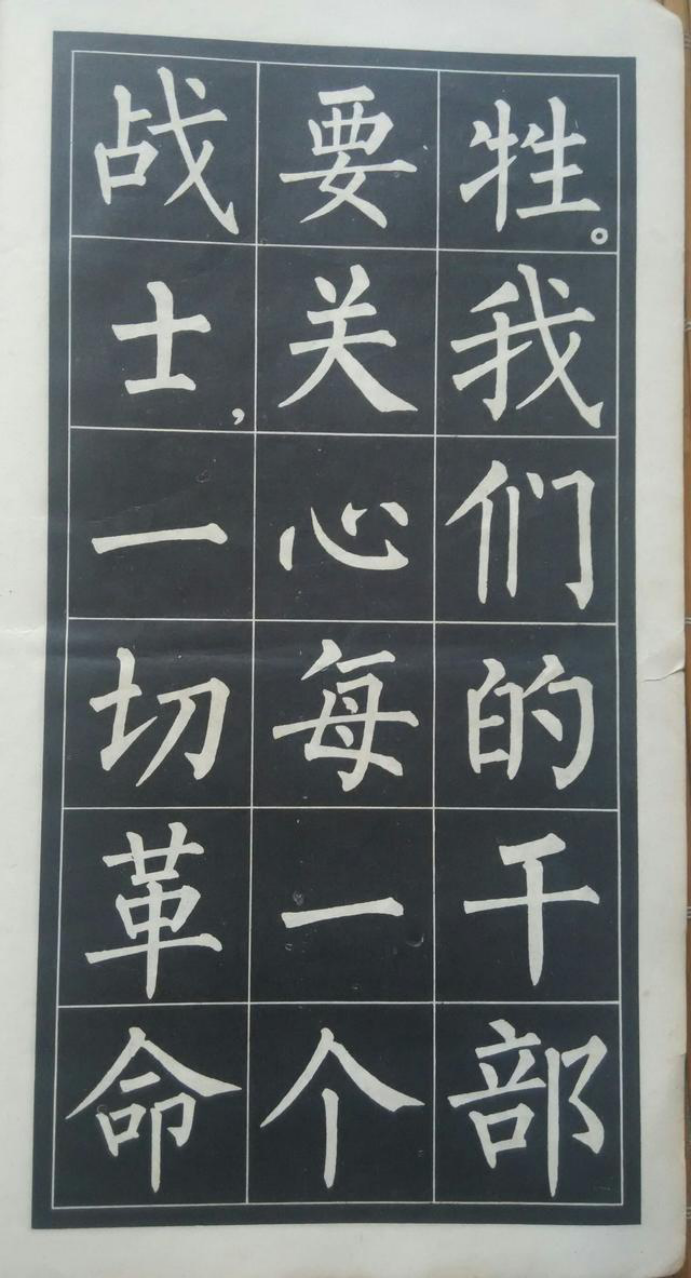 牲。我们的干部
要关心每一个
战士，一切革命